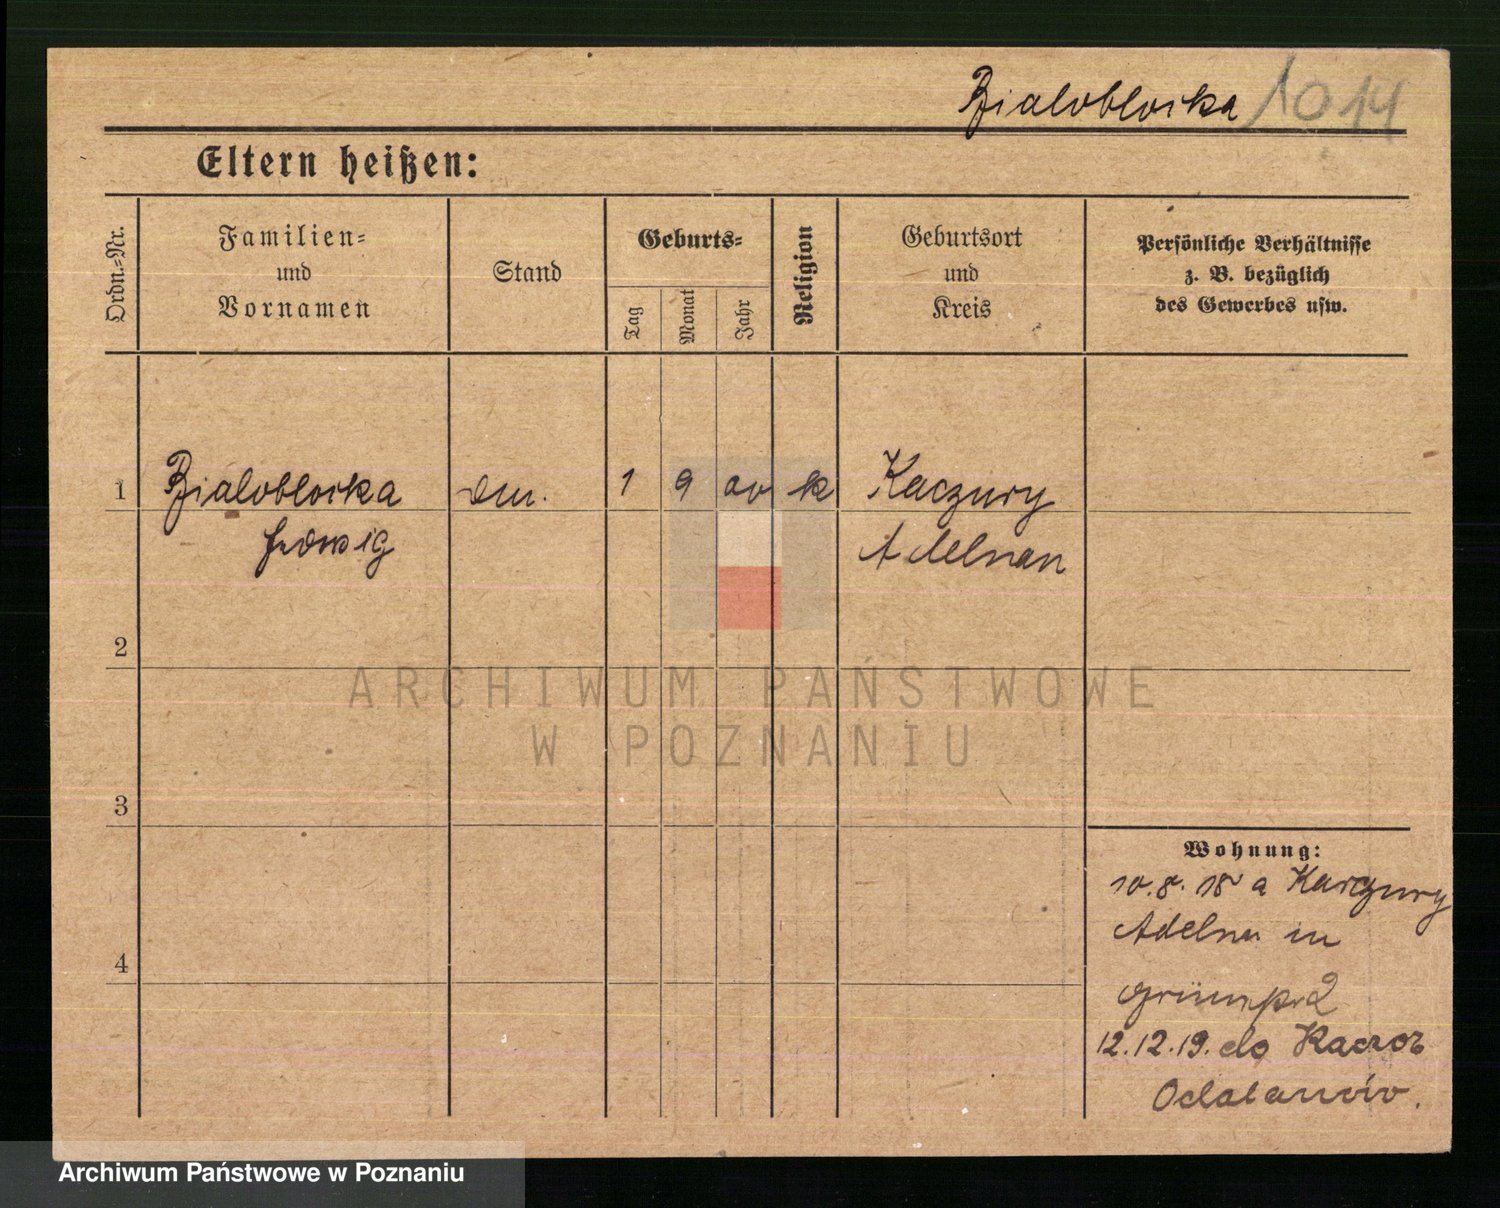 Bialoblocka 1014
Eltern heißen:
Ordn.-Nr.
Familien-
und
Vornamen
Stand
Geburts-
Tag
Monat
Jahr
Religion
Geburtsort
und
Kreis
Persönliche Verhältnisse
z. B. bezüglich
des Gewerbes usw.
1 Bialoblocka 1 9 00 k Kaczury
Hedwig Adelnau
2
3
4
Wohnung:
10.8.18 a Kaczury
Adelnau in
12.12.19. do
Odolanów.
ARCHIWUM PAŃSTWOWE
W POZNANIU
Archiwum Państwowe w Poznaniu